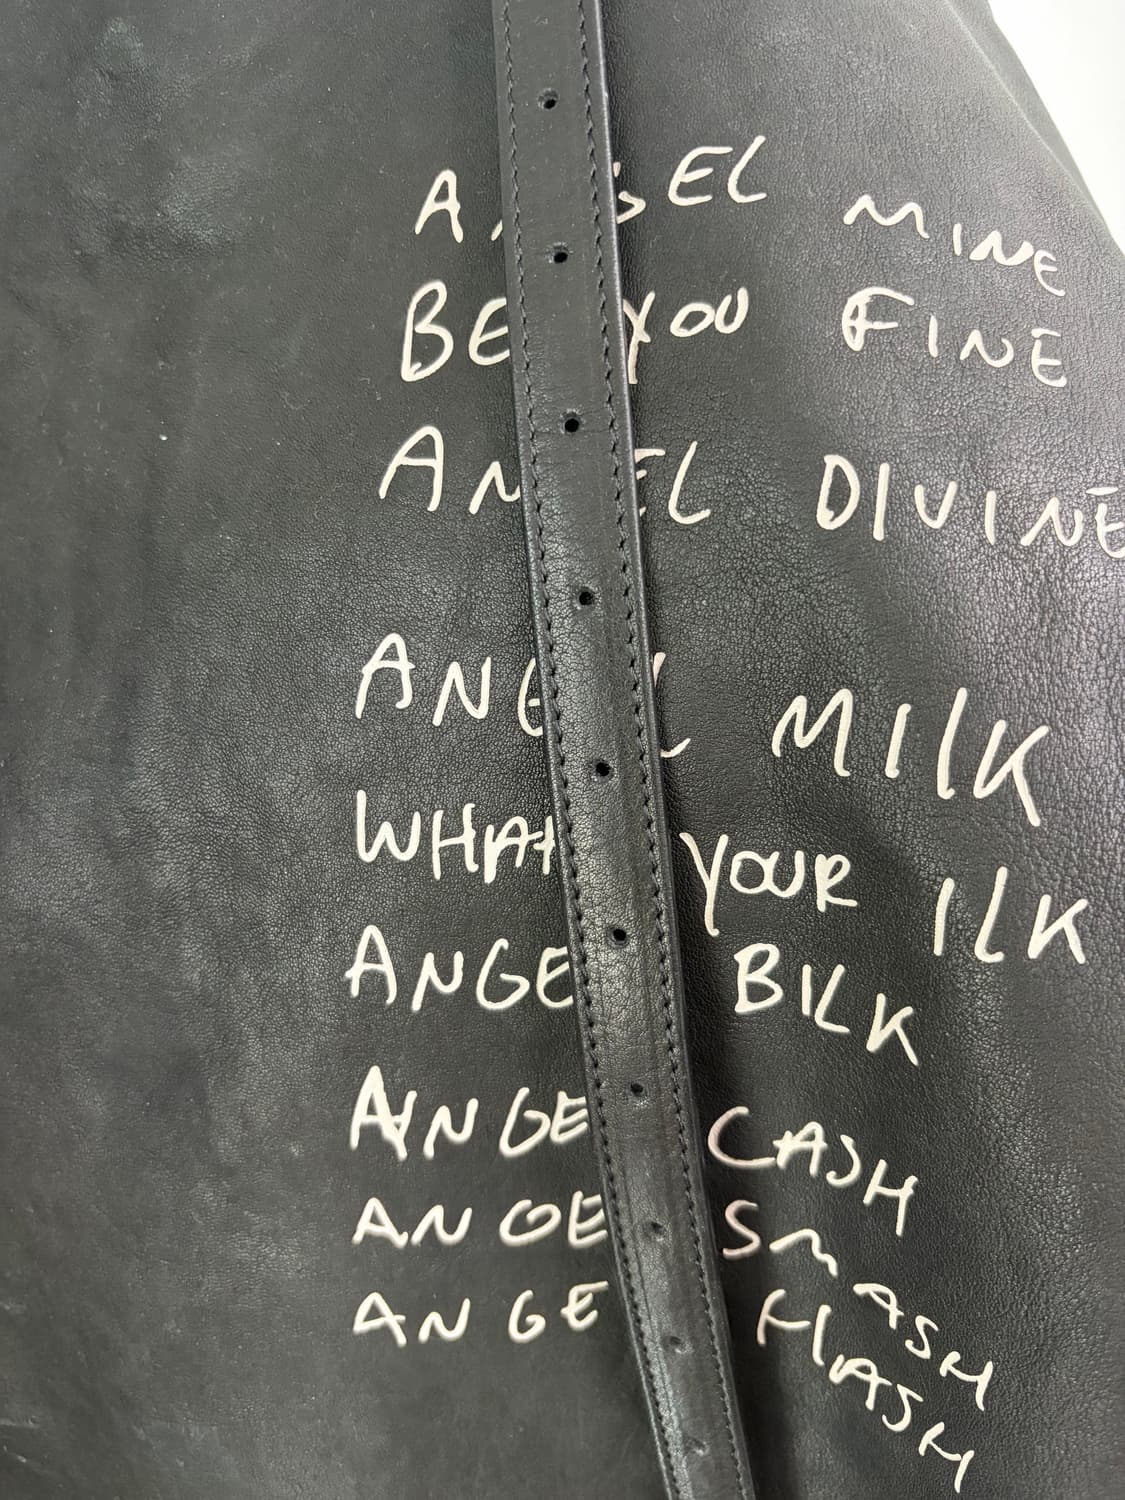 ANGEL MINE
BE YOU FINE
ANGEL DIVINE
ANGEL MILK
WHAT YOUR ILK
ANGEL BILK
ANGEL CASH
ANGEL SMASH
ANGEL FLASH